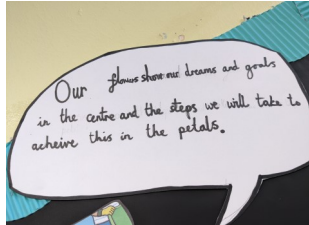 Our flowers show our dreams and goals
in the centre and the steps we will take to
acheive this in the petals.